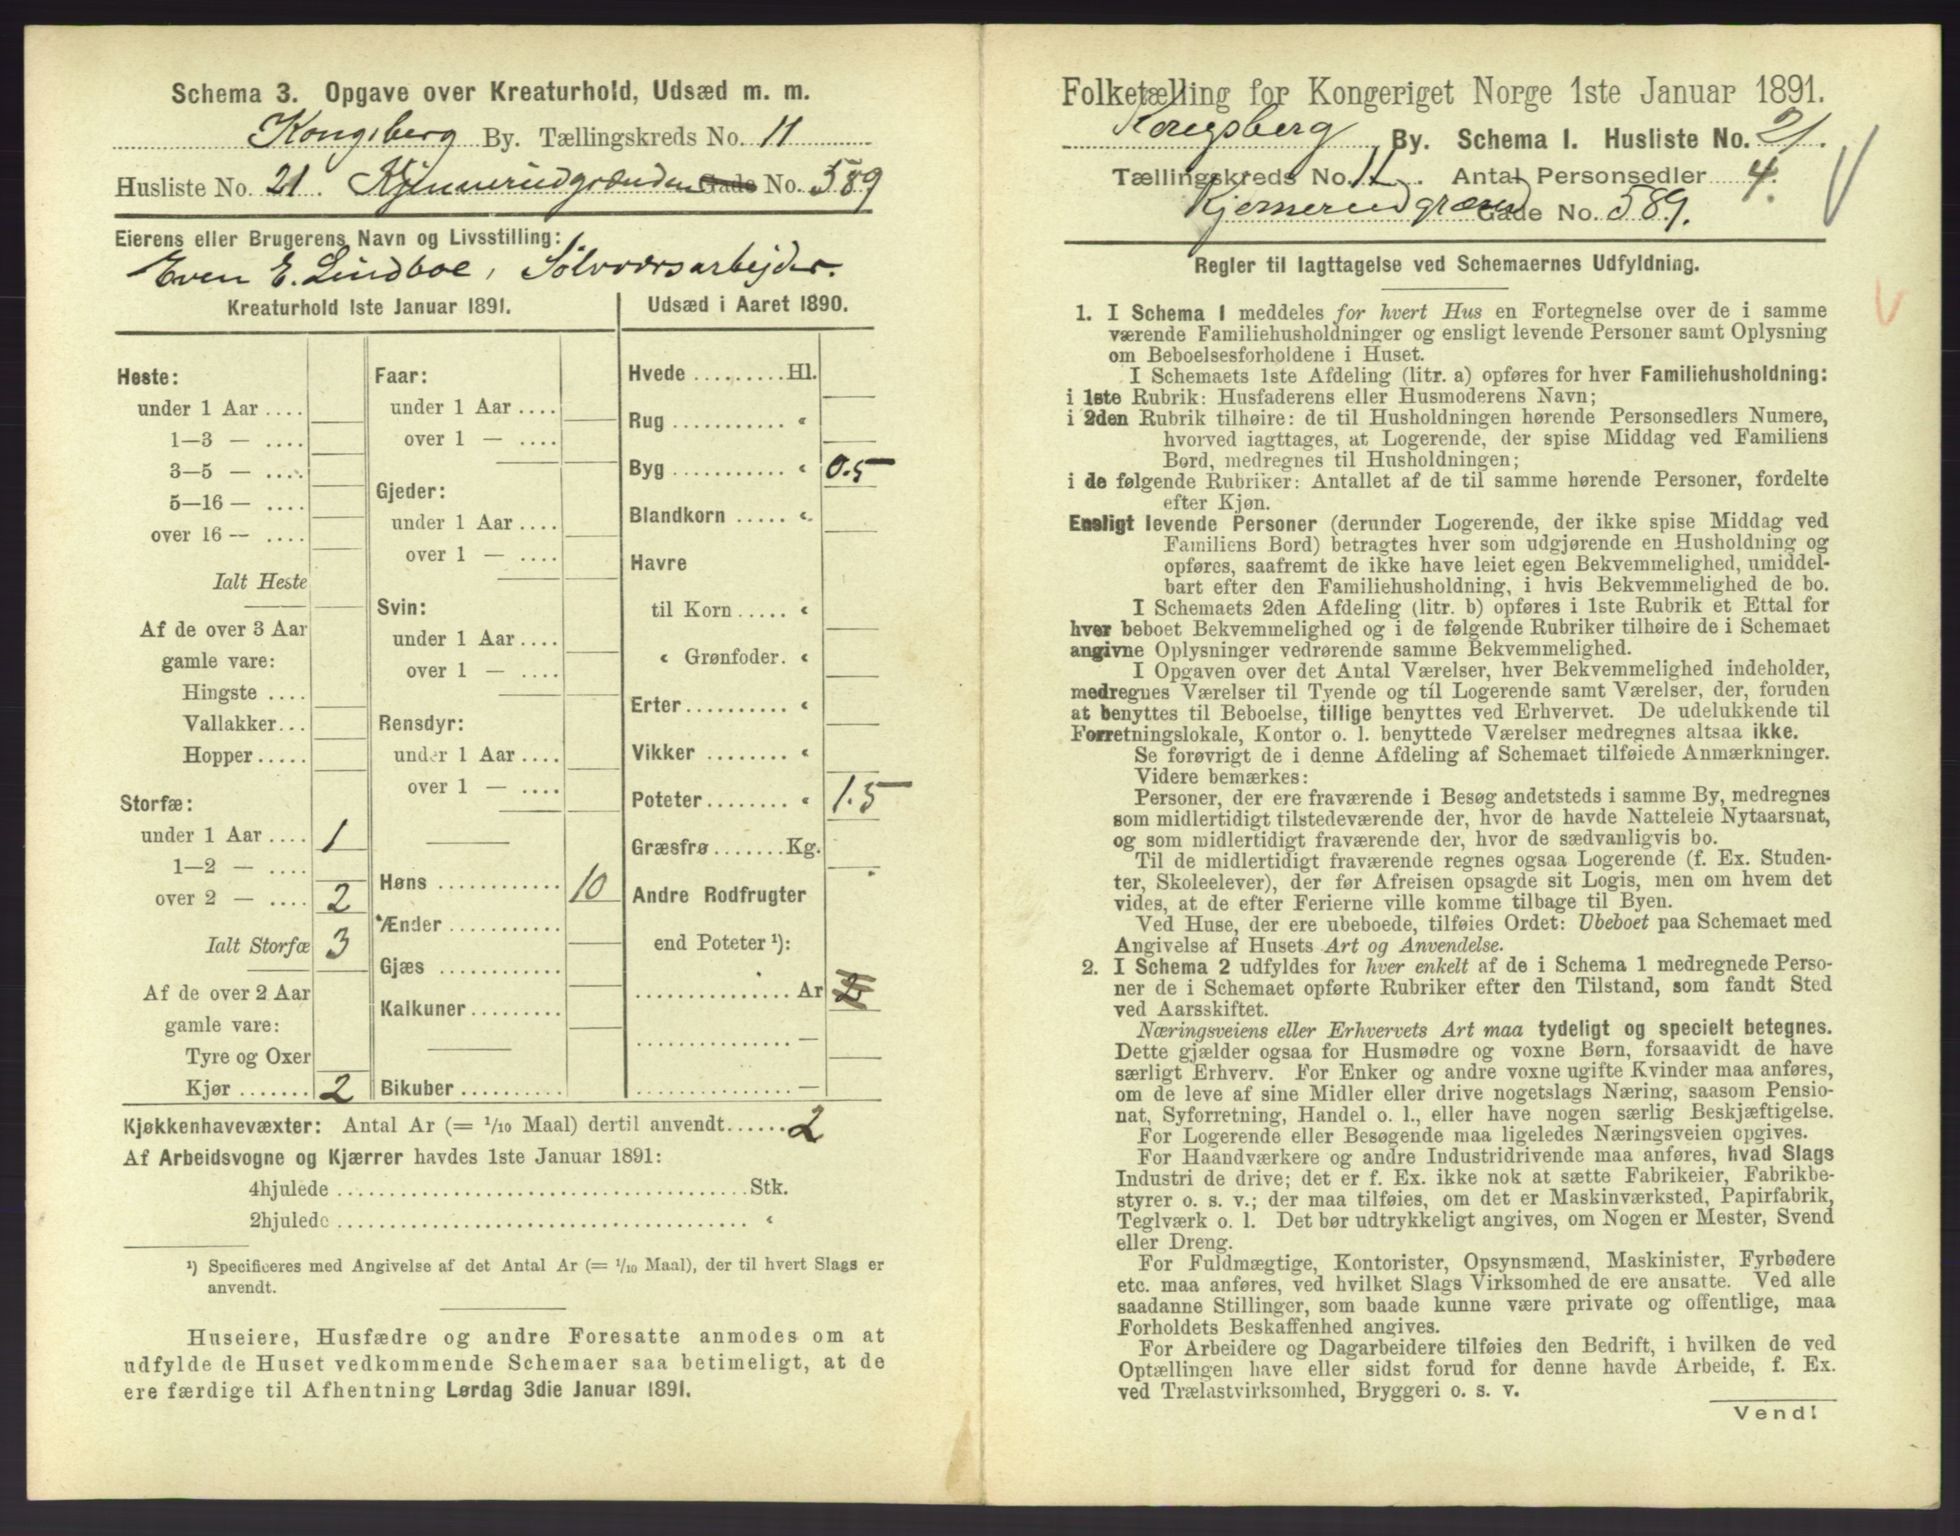 Schema 3. Opgave over Kreaturhold, Udsæd m. m.
Kongsberg By. Tællingskreds No. 11
Husliste No. 21. Kjennerudgrænden Gade No. 589
Eierens eller Brugerens Navn og Livsstilling:
Even E. Lindboe, Sølvværsarbejder.
Kreaturhold 1ste Januar 1891.
Heste:
under 1 Aar ....
1—3 — ....
3—5 — ....
5—16 — ....
over 16 — ....
Ialt Heste
Af de over 3 Aar
gamle vare:
Hingste ....
Vallakker...
Hopper.....
Storfæ:
under 1 Aar .... 1
1—2 — ....
over 2 — .... 2
Ialt Storfæ 3
Af de over 2 Aar
gamle vare:
Tyre og Oxer
Kjør ....... 2
Faar:
under 1 Aar ....
over 1 — ....
Gjeder:
under 1 Aar ....
over 1 — ....
Svin:
under 1 Aar ....
over 1 — ....
Rensdyr:
under 1 Aar ....
over 1 — ....
Høns ............ 10
Ænder ...........
Gjæs ............
Kalkuner.........
Bikuber..........
Udsæd i Aaret 1890.
Hvede .........Hl.
Rug ........... «
Byg ........... « 0.5
Blandkorn ..... «
Havre
til Korn ..... «
« Grønfoder. «
Erter.......... «
Vikker ........ «
Poteter........ « 1.5
Græsfrø.......Kg.
Andre Rodfrugter
end Poteter ¹):
...............Ar 2
............... —
............... —
Kjøkkenhavevæxter: Antal Ar (= 1/10 Maal) dertil anvendt...... 2
Af Arbeidsvogne og Kjærrer havdes 1ste Januar 1891:
4hjulede ........................................Stk.
2hjulede ........................................ «
¹) Specificeres med Angivelse af det Antal Ar (= 1/10 Maal), der til hvert Slags er
anvendt.
Huseiere, Husfædre og andre Foresatte anmodes om at
udfylde de Huset vedkommende Schemaer saa betimeligt, at de
ere færdige til Afhentning Lørdag 3die Januar 1891.
Folketælling for Kongeriget Norge 1ste Januar 1891.
Kongsberg By. Schema 1. Husliste No. 21.
Tællingskreds No. 11. Antal Personsedler 4.
Kjernerudgrænd Gade No. 589.
Regler til Iagttagelse ved Schemaernes Udfyldning.
1. I Schema 1 meddeles for hvert Hus en Fortegnelse over de i samme
værende Familiehusholdninger og ensligt levende Personer samt Oplysning
om Beboelsesforholdene i Huset.
I Schemaets 1ste Afdeling (litr. a) opføres for hver Familiehusholdning:
i 1ste Rubrik: Husfaderens eller Husmoderens Navn;
i 2den Rubrik tilhøire: de til Husholdningen hørende Personsedlers Numere,
hvorved iagttages, at Logerende, der spise Middag ved Familiens
Bord, medregnes til Husholdningen;
i de følgende Rubriker: Antallet af de til samme hørende Personer, fordelte
efter Kjøn.
Ensligt levende Personer (derunder Logerende, der ikke spise Middag ved
Familiens Bord) betragtes hver som udgjørende en Husholdning og
opføres, saafremt de ikke have leiet egen Bekvemmelighed, umiddel-
bart efter den Familiehusholdning, i hvis Bekvemmelighed de bo.
I Schemaets 2den Afdeling (litr. b) opføres i 1ste Rubrik et Ettal for
hver beboet Bekvemmelighed og i de følgende Rubriker tilhøire de i Schemaet
angivne Oplysninger vedrørende samme Bekvemmelighed.
I Opgaven over det Antal Værelser, hver Bekvemmelighed indeholder,
medregnes Værelser til Tyende og til Logerende samt Værelser, der, foruden
at benyttes til Beboelse, tillige benyttes ved Erhvervet. De udelukkende til
Forretningslokale, Kontor o. l. benyttede Værelser medregnes altsaa ikke.
Se forøvrigt de i denne Afdeling af Schemaet tilføiede Anmærkninger.
Videre bemærkes:
Personer, der ere fraværende i Besøg andetsteds i samme By, medregnes
som midlertidigt tilstedeværende der, hvor de havde Natteleie Nytaarsnat,
og som midlertidigt fraværende der, hvor de sædvanligvis bo.
Til de midlertidigt fraværende regnes ogsaa Logerende (f. Ex. Studen-
ter, Skoleelever), der før Afreisen opsagde sit Logis, men om hvem det
vides, at de efter Ferierne ville komme tilbage til Byen.
Ved Huse, der ere ubeboede, tilføies Ordet: Ubeboet paa Schemaet med
Angivelse af Husets Art og Anvendelse.
2. I Schema 2 udfyldes for hver enkelt af de i Schema 1 medregnede Perso-
ner de i Schemaet opførte Rubriker efter den Tilstand, som fandt Sted
ved Aarsskiftet.
Næringsveiens eller Erhvervets Art maa tydeligt og specielt betegnes.
Dette gjælder ogsaa for Husmødre og voxne Børn, forsaavidt de have
særligt Erhverv. For Enker og andre voxne ugifte Kvinder maa anføres,
om de leve af sine Midler eller drive nogetslags Næring, saasom Pensio-
nat, Syforretning, Handel o. l., eller have nogen særlig Beskjæftigelse.
For Logerende eller Besøgende maa ligeledes Næringsveien opgives.
For Haandværkere og andre Industridrivende maa anføres, hvad Slags
Industri de drive; det er f. Ex. ikke nok at sætte Fabrikeier, Fabrikbe-
styrer o. s. v.; der maa tilføies, om det er Maskinværksted, Papirfabrik,
Teglværk o. l. Det bør udtrykkeligt angives, om Nogen er Mester, Svend
eller Dreng.
For Fuldmægtige, Kontorister, Opsynsmænd, Maskinister, Fyrbødere
etc. maa anføres, ved hvilket Slags Virksomhed de ere ansatte. Ved alle
saadanne Stillinger, som baade kunne være private og offentlige, maa
Forholdets Beskaffenhed angives.
For Arbeidere og Dagarbeidere tilføies den Bedrift, i hvilken de ved
Optællingen have eller sidst forud for denne havde Arbeide, f. Ex.
ved Trælastvirksomhed, Bryggeri o. s. v.
Vend!